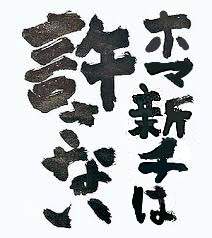 ホマ新チは
許さない